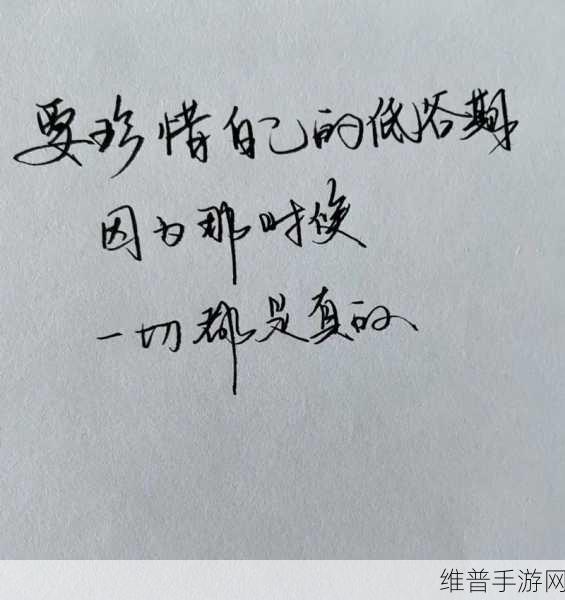 要珍惜自己的低谷期
因为那时候
一切都是真的
维普手游网